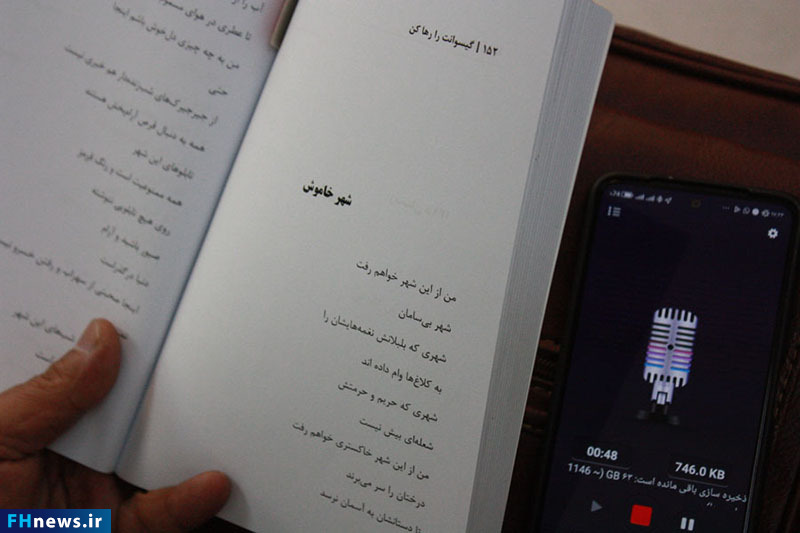 ۱۵۲ | گیسوانت را رها کن
شهر خاموش
من از این شهر خواهم رفت
شهر بی‌سامان
شهری که بلبلانش نغمه‌هایشان را
به کلاغ‌ها وام داده اند
شهری که حریم و حرمتش
شعله‌ای بیش نیست
من از این شهر خاکستری خواهم رفت
درختان را سر می‌برند
تا دستانشان به آسمان نرسد
آب را از
تا عطری در هوای مسموم
من به چه چیزی دل‌خوش باشم اینجا
حتی
از جیرجیرک‌های شب‌زنده‌دار هم خبری نیست
همه به دنبال قرص آرام‌بخش هستند
تابلوهای این شهر
همه ممنوعیت است و رنگ قرمز
روی هیچ تابلویی ننوشته
صبور باشید و آرام
دنیا درگذر است
اینجا صحبتی از سهراب و رفتن خسرو نیست
شب‌های این شهر
است
00:48
746.0 KB
ذخیره سازی باقی مانده است: ۶۲ GB (~ 1146
FHnews.ir